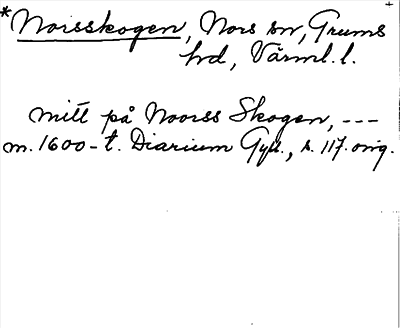 *Norsskogen, Nors sn, Grums
hd, Värml.l.
mitt på Noorss Skogen, ---
m. 1600-t. Diarium Gyll., s. 117. orig.